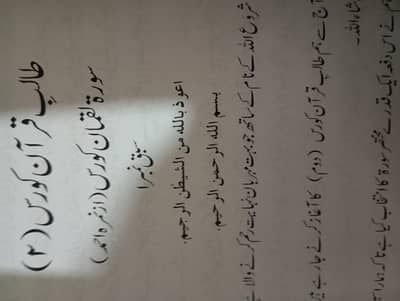 طالب قرآن کورس (۲)
سورۃ لقمان کورس (از نمرہ احمد)
سبق نمبر ۱
اعوذ بالله من الشيطن الرجيم.
بسم الله الرحمن الرحيم.
شروع اللہ کے نام کے ساتھ جو بہت مہربان نہایت رحم کرنے والا ہے
آج سے ہم طالب قرآن کورس (دوم) کا آغاز کرنے جا رہے
ہم نے اس دفعہ ایک قدرے مختصر سورۃ کا انتخاب کیا ہے تاکہ ہمارا
شاءاللہ۔